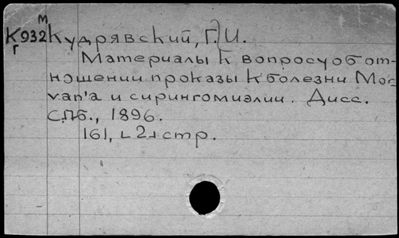 М
К932 Кудрявский, Г. И.
г
Материалы к вопросу об от-
ношении проказы к болезни Mor-
van'a и сирингомиэлии. Дисс.
С.Пб., 1896.
161, ∟2⅃ стр.